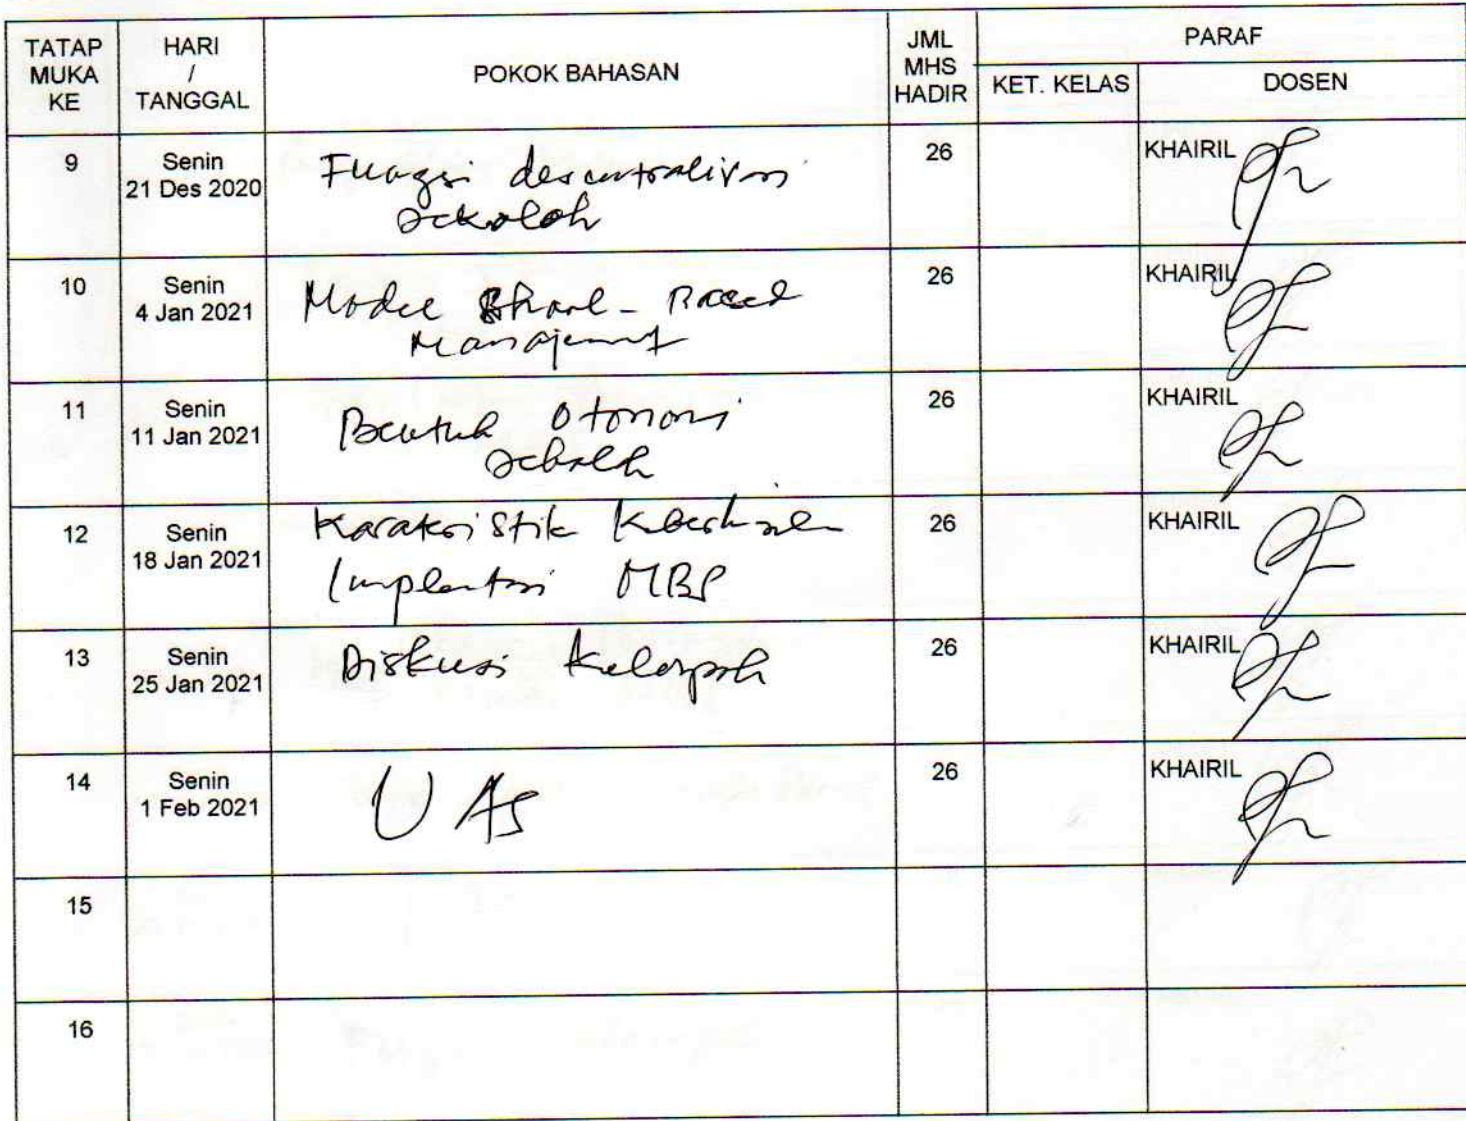 TATAP MUKA KE
HARI / TANGGAL
POKOK BAHASAN
JML MHS HADIR
PARAF
KET. KELAS
DOSEN
9
Senin
21 Des 2020
Fungsi desentralisasi
sekolah
26
KHAIRIL
10
Senin
4 Jan 2021
Model School - Based
Manajement
26
KHAIRIL
11
Senin
11 Jan 2021
Bentuk Otonomi
sekolah
26
KHAIRIL
12
Senin
18 Jan 2021
Karakteristik
MBS
26
KHAIRIL
13
Senin
25 Jan 2021
Diskusi Kelompok
26
KHAIRIL
14
Senin
1 Feb 2021
UAS
26
KHAIRIL
15
16